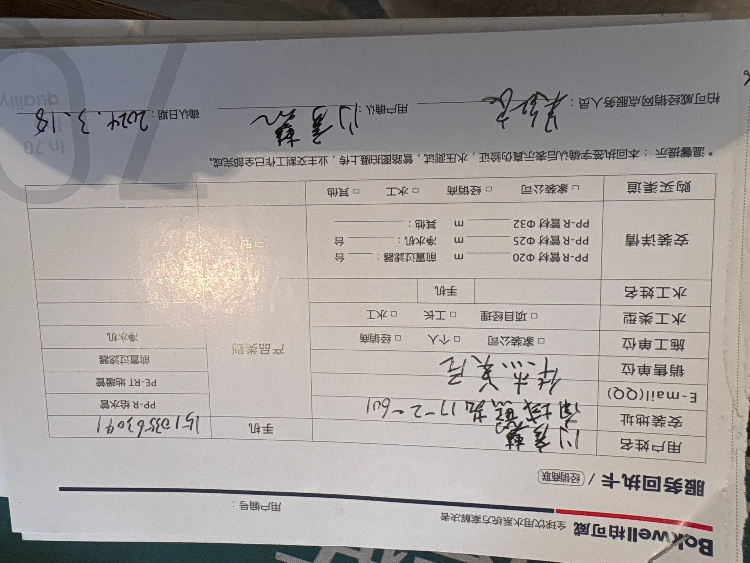 Bakwell柏可威 全球饮用水系统方案解决者 用户编号：
服务回执卡 / 经销商联
用户姓名 手机 15103563091
安装地址 17-2-601 PP-R 给水管
E-mail(QQ) PE-RT 地暖管
销售单位 前置过滤器
施工单位 □ 家装公司 □ 个人 □ 经销商 产品类别 净水机
水工类型 □ 项目经理 □ 工长 □ 水工
水工姓名 手机
安装详情 PP-R 管材 Φ20 m 前置过滤器： 台
PP-R 管材 Φ25 m 净水机： 台
PP-R 管材 Φ32 m 其他：
购买渠道 □ 家装公司 □ 经销商 □ 水工 □ 其他
* 温馨提示：本回执签字确认后表示真伪验证，水压测试，管路图拍摄上传，业主交割工作已全部完成。
柏可威经销网点服务人员： 用户确认： 确认日期： 2024.3.18
quality
in 70